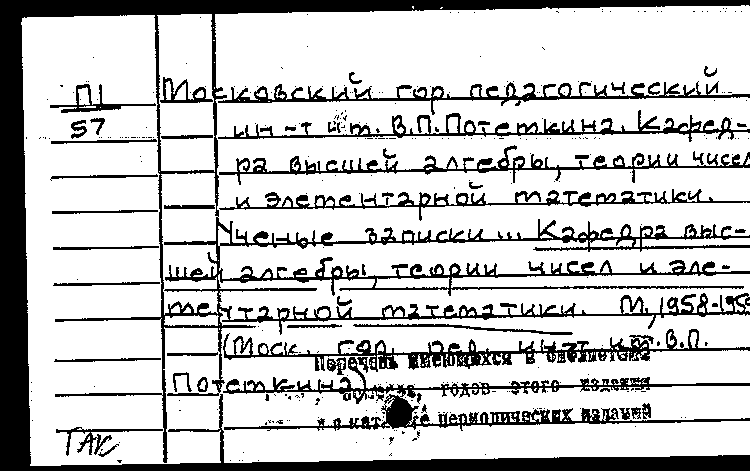 П1
57
Московский гор. педагогический
ин-т им. В.П.Потемкина. Кафед-
ра высшей алгебры, теории чисел
и элементарной математики.
Ученые записки... Кафедра выс-
шей алгебры, теории чисел и эле-
ментарной математики. М., 1958-195
(Моск. гор. пед. ин-т им. В.П.
Потемкина)
Перечень имеющихся в библиотеке
годов этого издания
периодических изданий
ТАК.